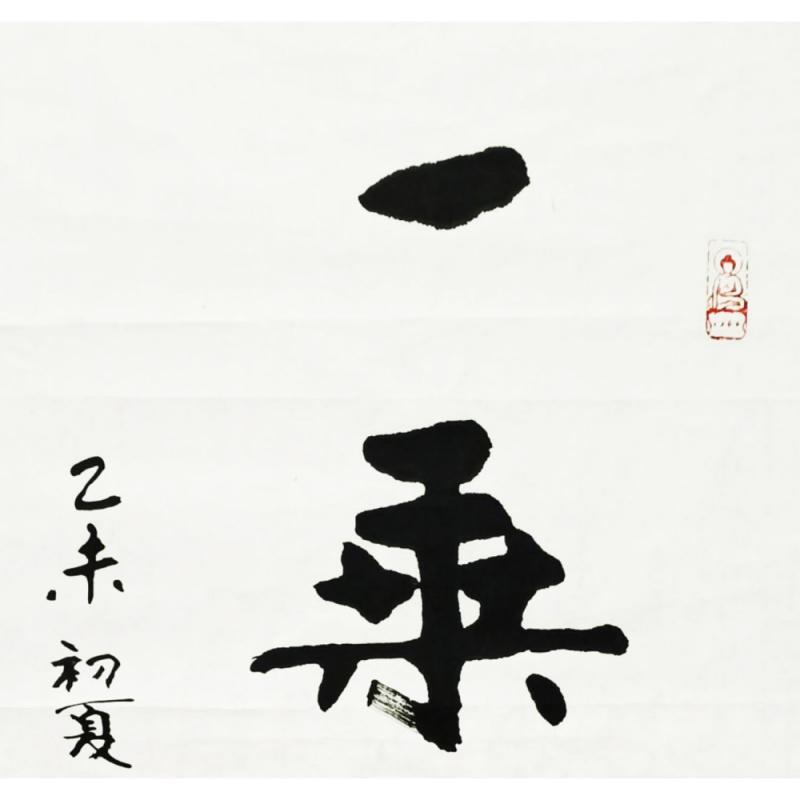 一乗
乙未 初夏